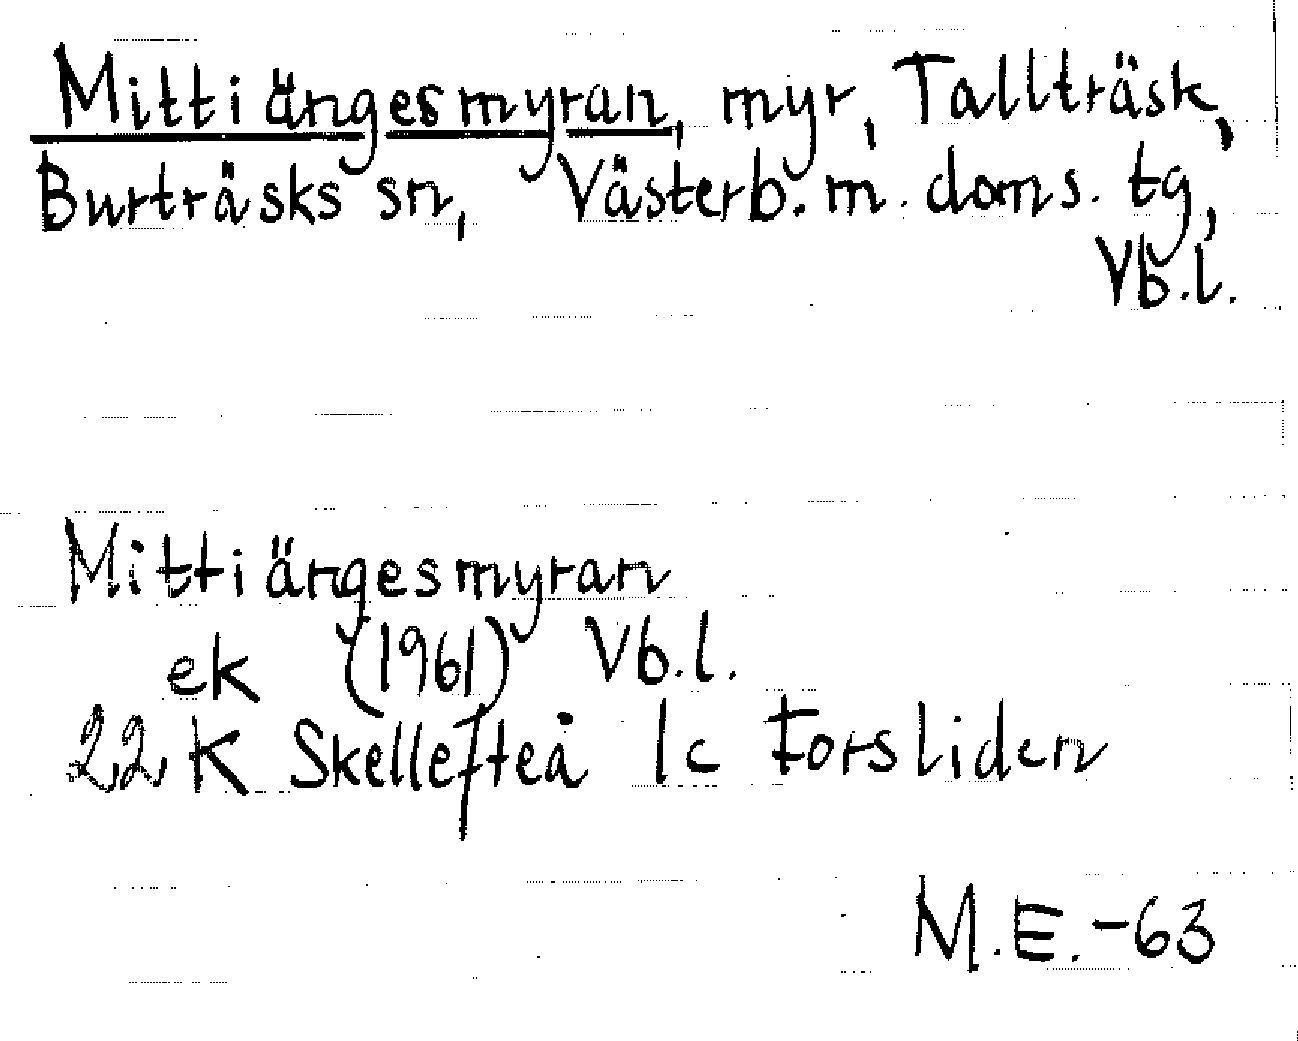 Mittiängesmyran, myr, Tallträsk,
Burträsks sn, Västerb. m. doms. tg,
Vb.l.
Mittiängesmyran
ek (1961) Vb.l.
22 K Skellefteå 1c Forsliden
M.E. -63